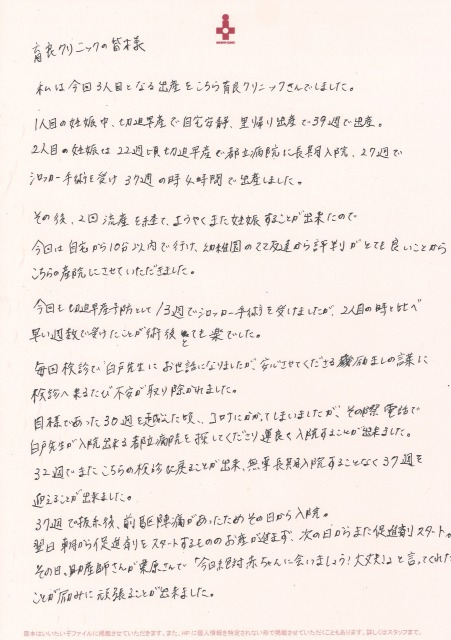 育良クリニックの皆様
私は今回3人目となる出産をこちら育良クリニックさんでしました。
1人目の妊娠中、切迫早産で自宅安静、里帰り出産で39週で出産。
2人目の妊娠は22週頃切迫早産で都立病院に長期入院、27週で
シロッカー手術を受け37週の時4時間で出産しました。
その後、2回流産を経て、ようやくまた妊娠することが出来たので
今回は自宅から10分以内で行け、幼稚園のママ友達から評判がとても良いことから
こちらの産院にさせていただきました。
今回も切迫早産予防として13週でシロッカー手術を受けましたが、2人目の時と比べ
早い週数で受けたことが術後とても楽でした。
毎回検診で白戸先生にお世話になりましたが、安心させてくださる励ましの言葉に
検診へ来るたび不安が取り除かれました。
目標であった30週を越えた頃、コロナにかかってしまいましたが、その際電話で
白戸先生が入院出来る都立病院を探してくださり運良く入院することが出来ました。
32週でまたこちらの検診に戻ることが出来、無事長期入院することなく37週を
迎えることが出来ました。
37週で抜糸後、前駆陣痛があったためその日から入院。
翌日朝から促進剤をスタートするもののお産が進まず、次の日からまた促進剤スタート。
その日、助産師さんが栗原さんで「今日絶対赤ちゃんに会いましょう!大丈夫!」と言ってくれた
ことが励みに頑張ることが出来ました。
原本はいいたいぞファイルに掲載させていただきます。また、HPに個人情報を特定されない形で掲載させていただくこともあります。詳しくはスタッフまで。